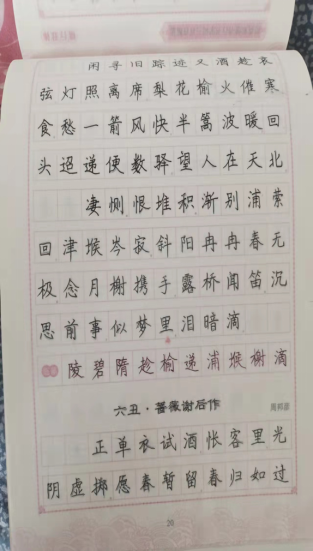 闲寻旧踪迹又酒趁哀
弦灯照离席梨花榆火催寒
食愁一箭风快半篙波暖回
头迢递便数驿望人在天北
凄恻恨堆积渐别浦萦
回津堠岑寂斜阳冉冉春无
极念月榭携手露桥闻笛沉
思前事似梦里泪暗滴
陵碧隋趁榆递浦堠榭滴
六丑·蔷薇谢后作
周邦彦
正单衣试酒怅客里光
阴虚掷愿春暂留春归如过
20